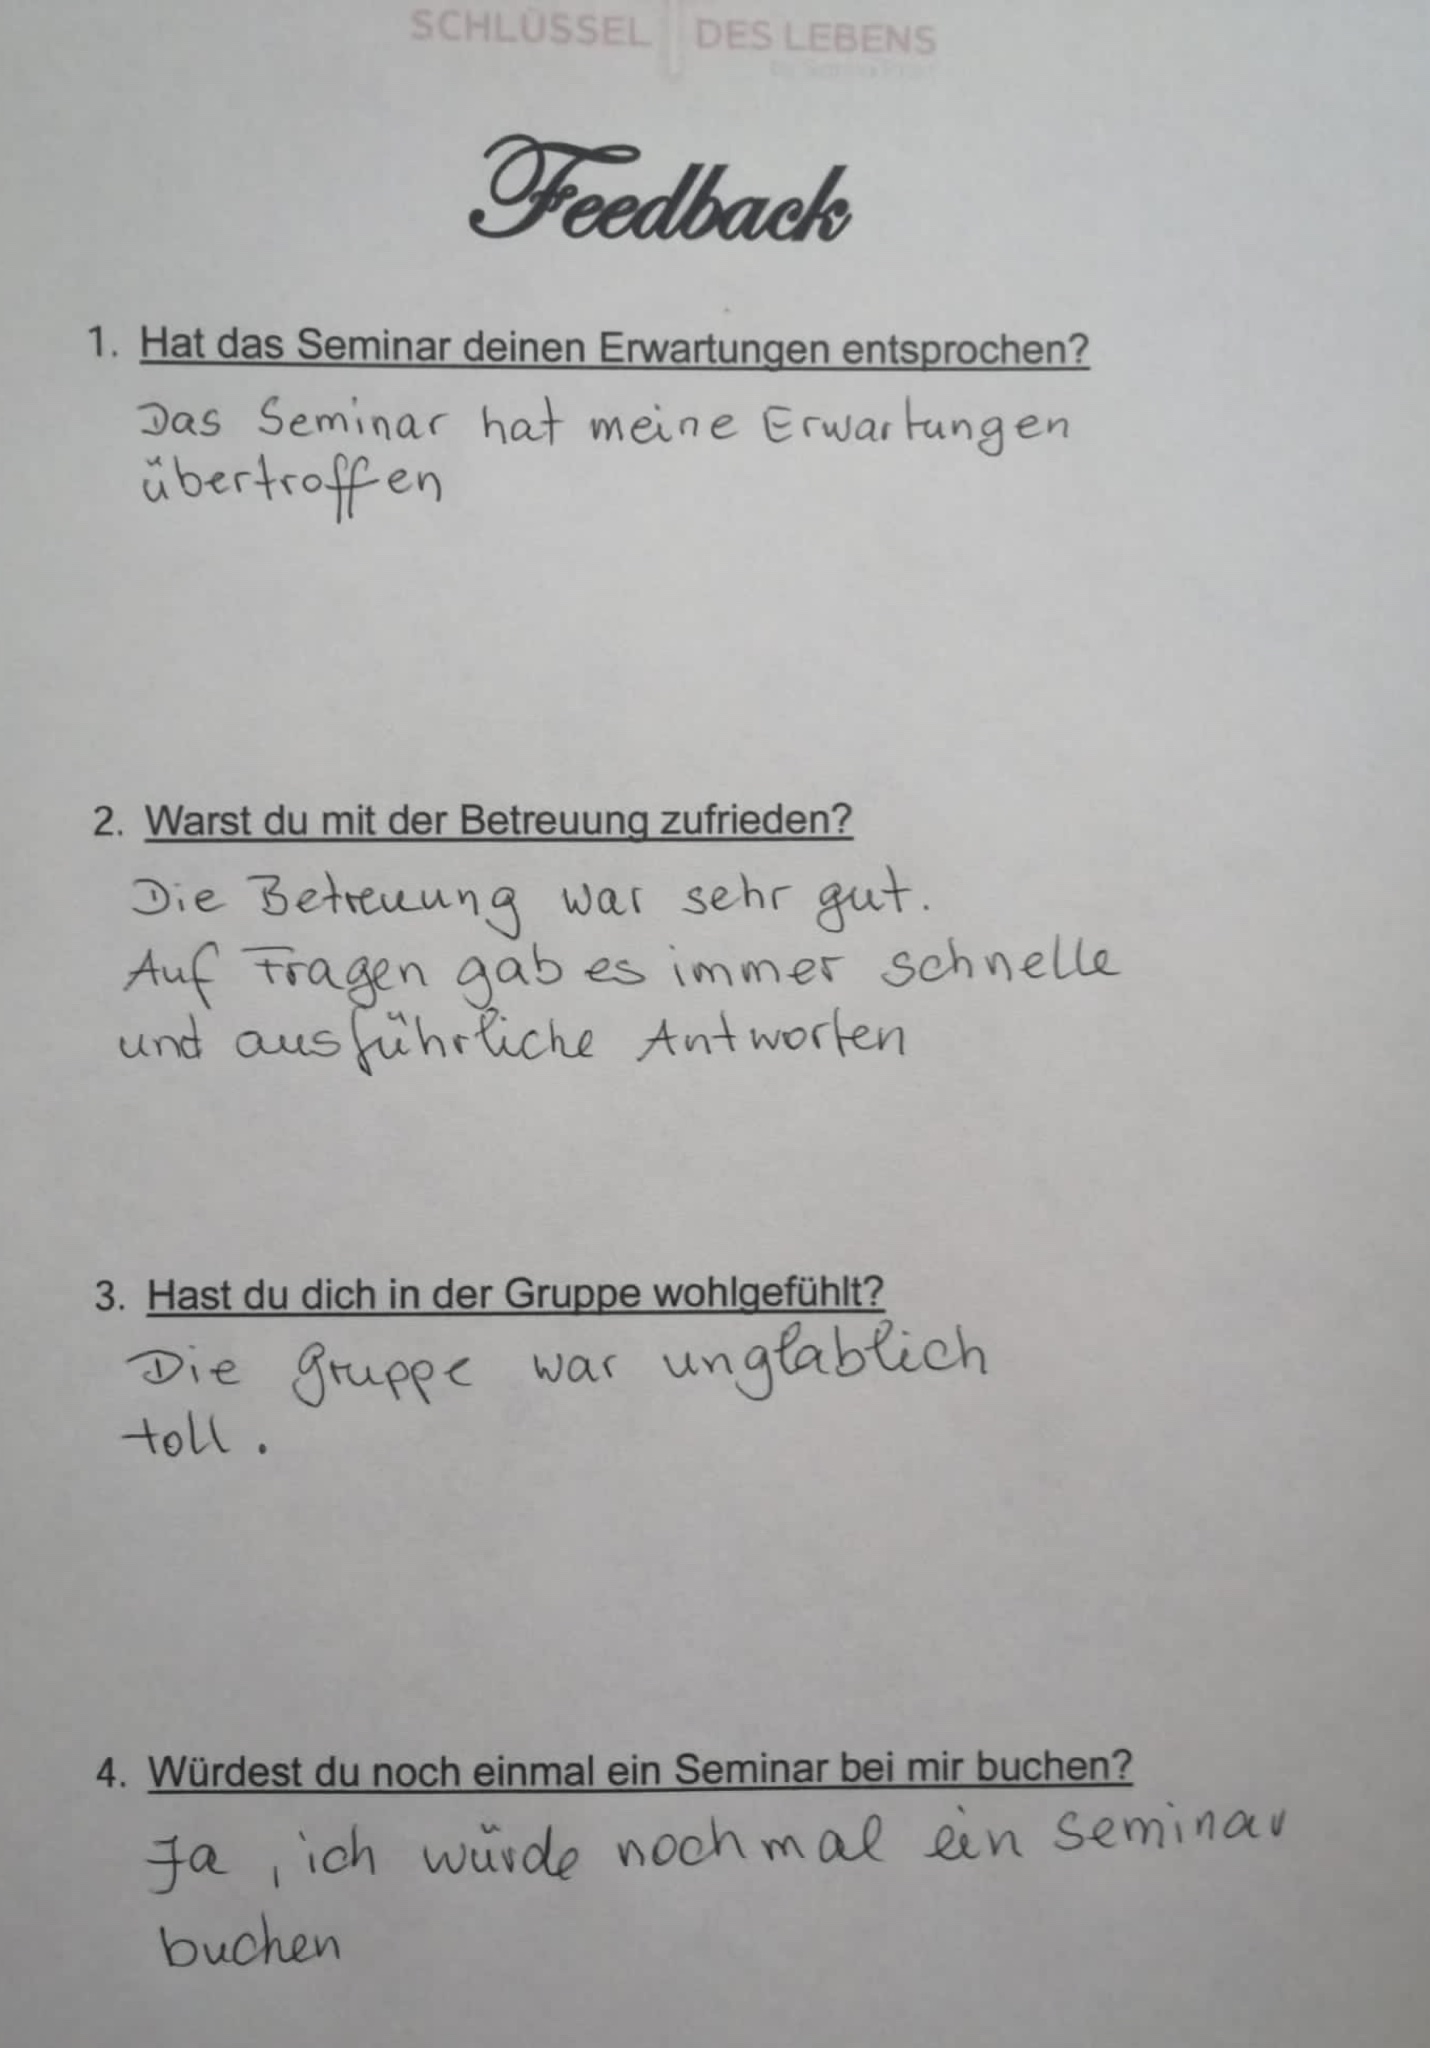 SCHLÜSSEL DES LEBENS
Feedback
1. Hat das Seminar deinen Erwartungen entsprochen?
Das Seminar hat meine Erwartungen
übertroffen
2. Warst du mit der Betreuung zufrieden?
Die Betreuung war sehr gut.
Auf Fragen gab es immer schnelle
und ausführliche Antworten
3. Hast du dich in der Gruppe wohlgefühlt?
Die Gruppe war unglablich
toll.
4. Würdest du noch einmal ein Seminar bei mir buchen?
Ja, ich würde nochmal ein Seminar
buchen